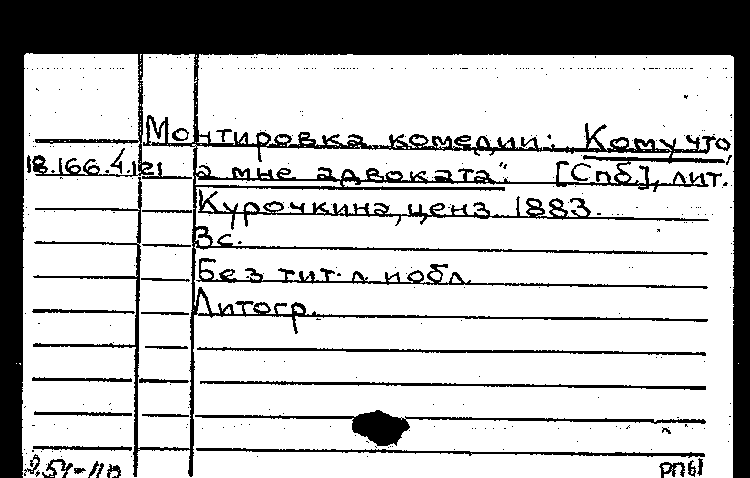 Монтировка комедии: „Кому что,
18.166.4.121 а мне адвоката". [Спб], лит.
Курочкина, ценз. 1883.
3 с.
Без тит. л. и обл.
Литогр.